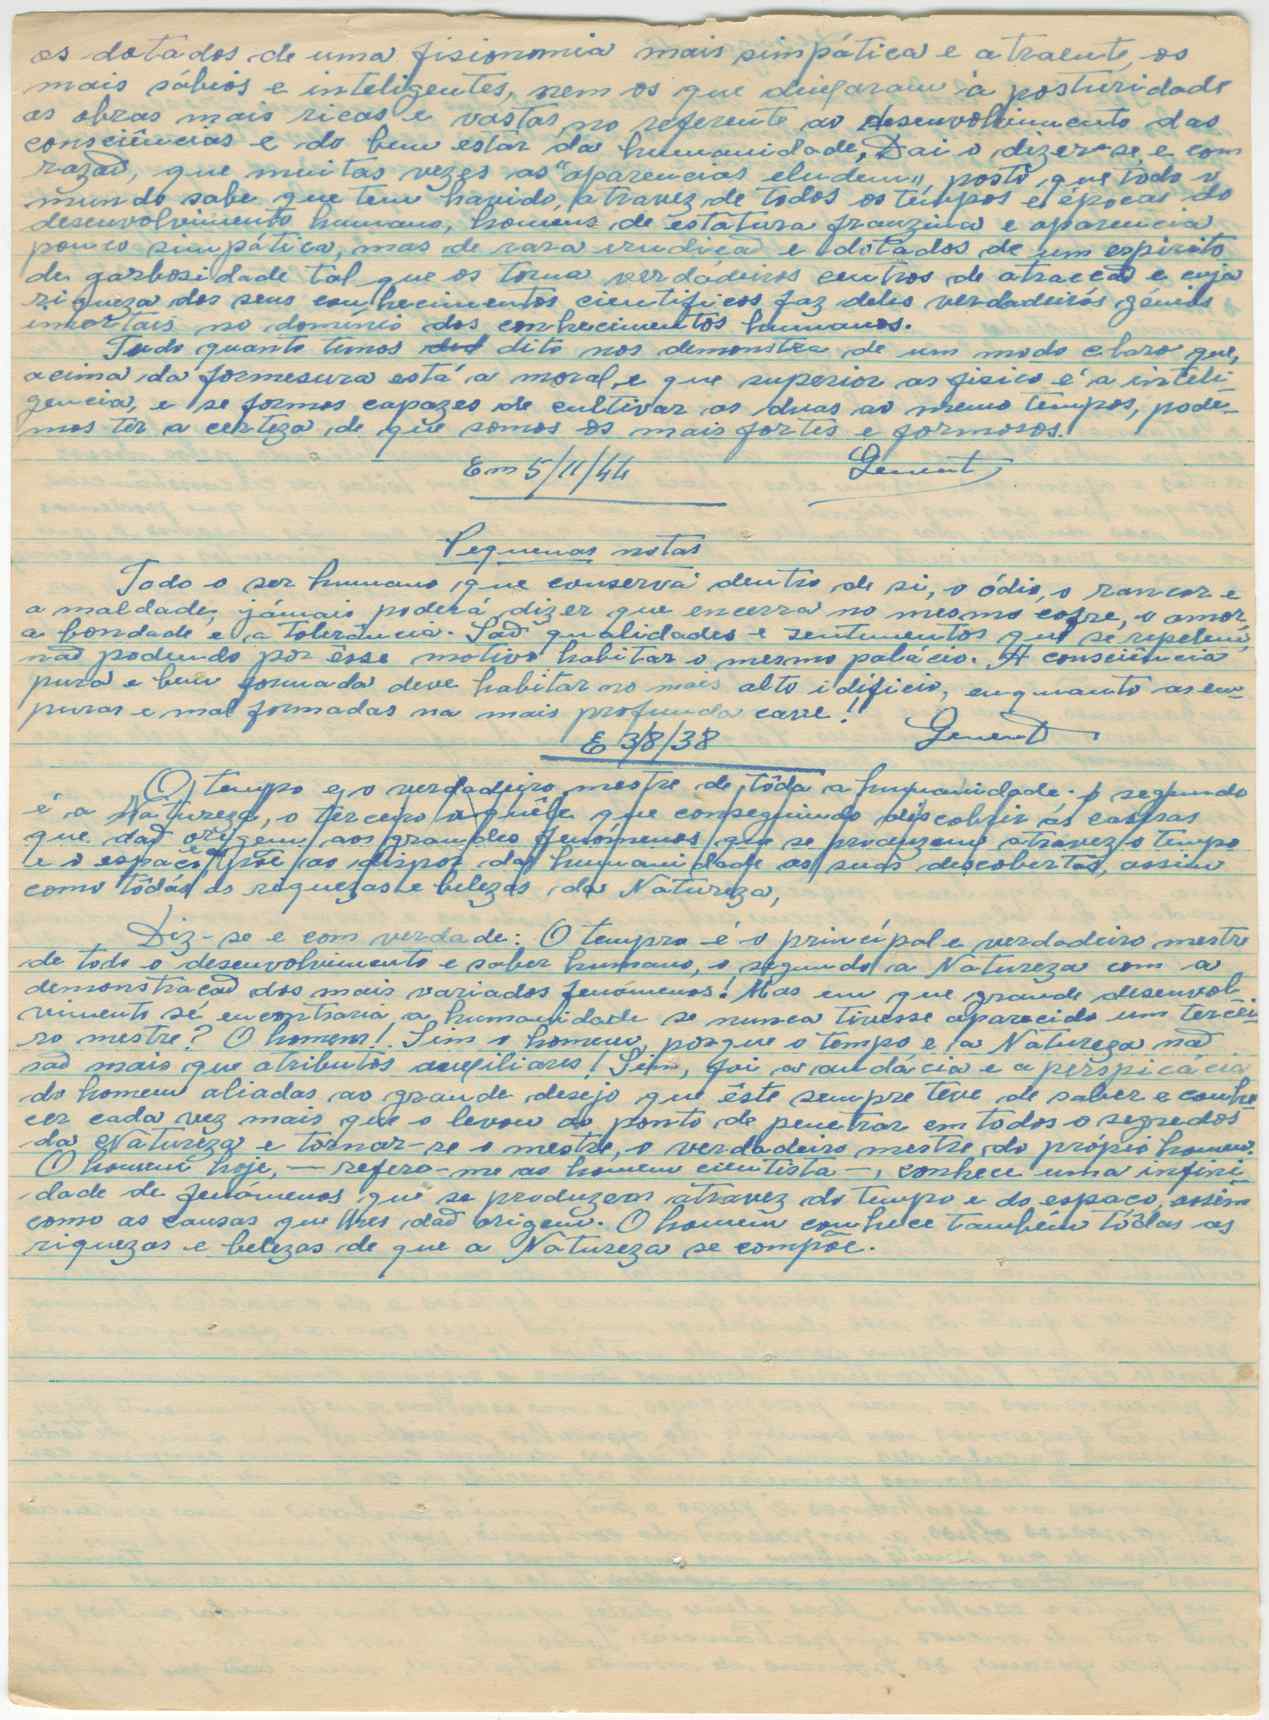 os dotados de uma fisionomia mais simpática e atraente, os
mais sábios e inteligentes, nem os que deixaram à posturidade
as obras mais ricas e vastas no referente ao desenvolvimento das
consciências e do bem estár da humanidade, Dai o dizer-se e com
razaõ, que muitas vezes as "aparencias eludem" posto que todo o
mundo sabe que tem havido, atravez de todos os tempos e épocas do
desenvolvimento humano, homens de estatura franzina e aparencia
pouco simpática, mas de rara erudicaõ e dotados de um espirito
de garbosidade tal que os torna verdádeiros centros de atraccaõ e cuja
riqueza dos seus conhecimentos cientificos faz deles verdadeirós génios
imortais no domínio dos conhecimentos humanos.
Tudo quanto temos dito nos demonstra de um modo claro que,
acima da formosura está a moral, e que superior ao fisico é a inteli-
gencia, e se formos capazes de cultivar as duas ao memo tempos, pode-
mos ter a certeza de que somos os mais fortes e formosos.
Em 5/11/44
Pequenas notas
Todo o ser humano que conserva dentro de si, o ódio, o rancor e
a maldade, jámais poderá dizer que encerra no mesmo cofre, o amor
a bondade e a tolerância. Saõ qualidades e sentimentos que se repelem
naõ podendo por êsse motivo habitar o mesmo palácio. A consciência
pura e bem formada deve habitar no mais alto idificio, enquanto as em-
puras e mal formadas na mais profunda cave!
E 3/8/38
O tempo é o verdadeiro mestre de tôda a humanidade. o segundo
é a Natureza, o terceiro aquêle que conseguindo discobrir as causas
que daõ origem aos grandes fenómenos que se produzem atravez o tempo
e o espaço, põe ao dispor da humanidade as suas descobertas, assim
como tôdas as riquezas e belezas da Natureza,
Diz-se e com verdade: O tempo é o princípal e verdadeiro mestre
de todo o desenvolvimento e saber humano, o segundo a Natureza com a
demonstracaõ dos mais variados fenómenos! Mas em que grande desenvol-
vimento se encontraria a humanidade se nunca tivesse aparecido um tercei-
ro mestre? O homem! Sim o homem, porque o tempo e a Natureza naõ
saõ mais que atributos auxiliares! Sim, foi a audácia e a perspicácia
do homem aliadas ao grande desejo que êste sempre teve de saber e conhe
cer cada vez mais que o levou ao ponto de penetrar em todos o segredos
da Natureza e tornar-se o mestre, o verdadeiro mestre do próprio homem.
O homem hoje, — refero-me ao homem cientista —, conhece uma infini-
dade de fenómenos que se produzem atravez do tempo e do espaço, assim
como as causas que lhes daõ origem. O homem conhece também tôdas as
riquezas e belezas de que a Natureza se compõe.